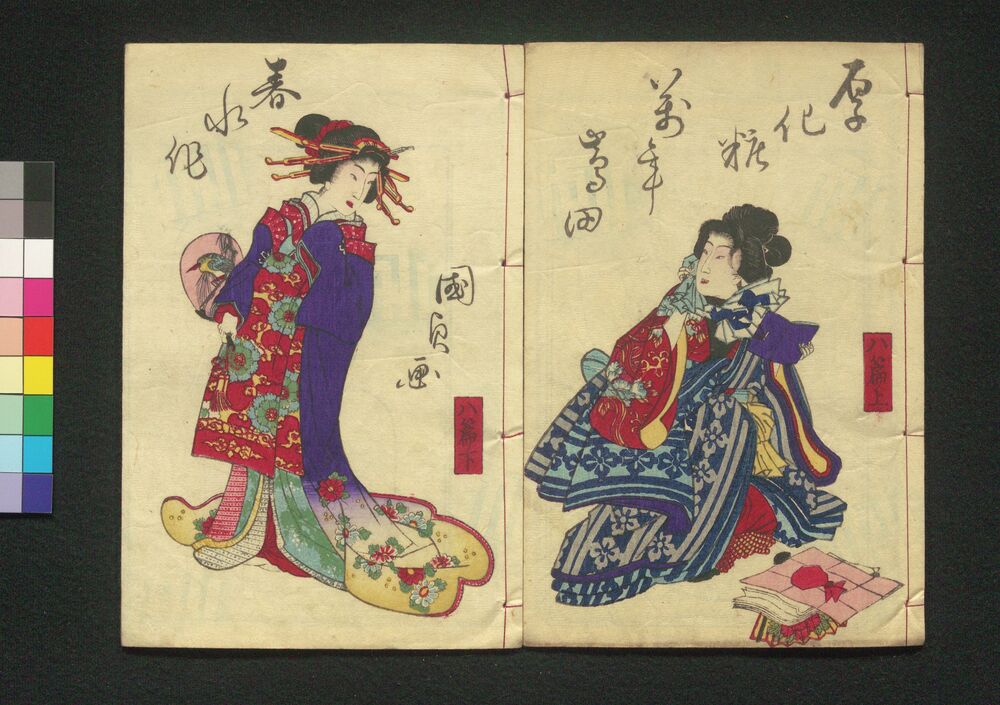 厚化粧
萬年島田
八篇上
春水作
國貞画
八篇下